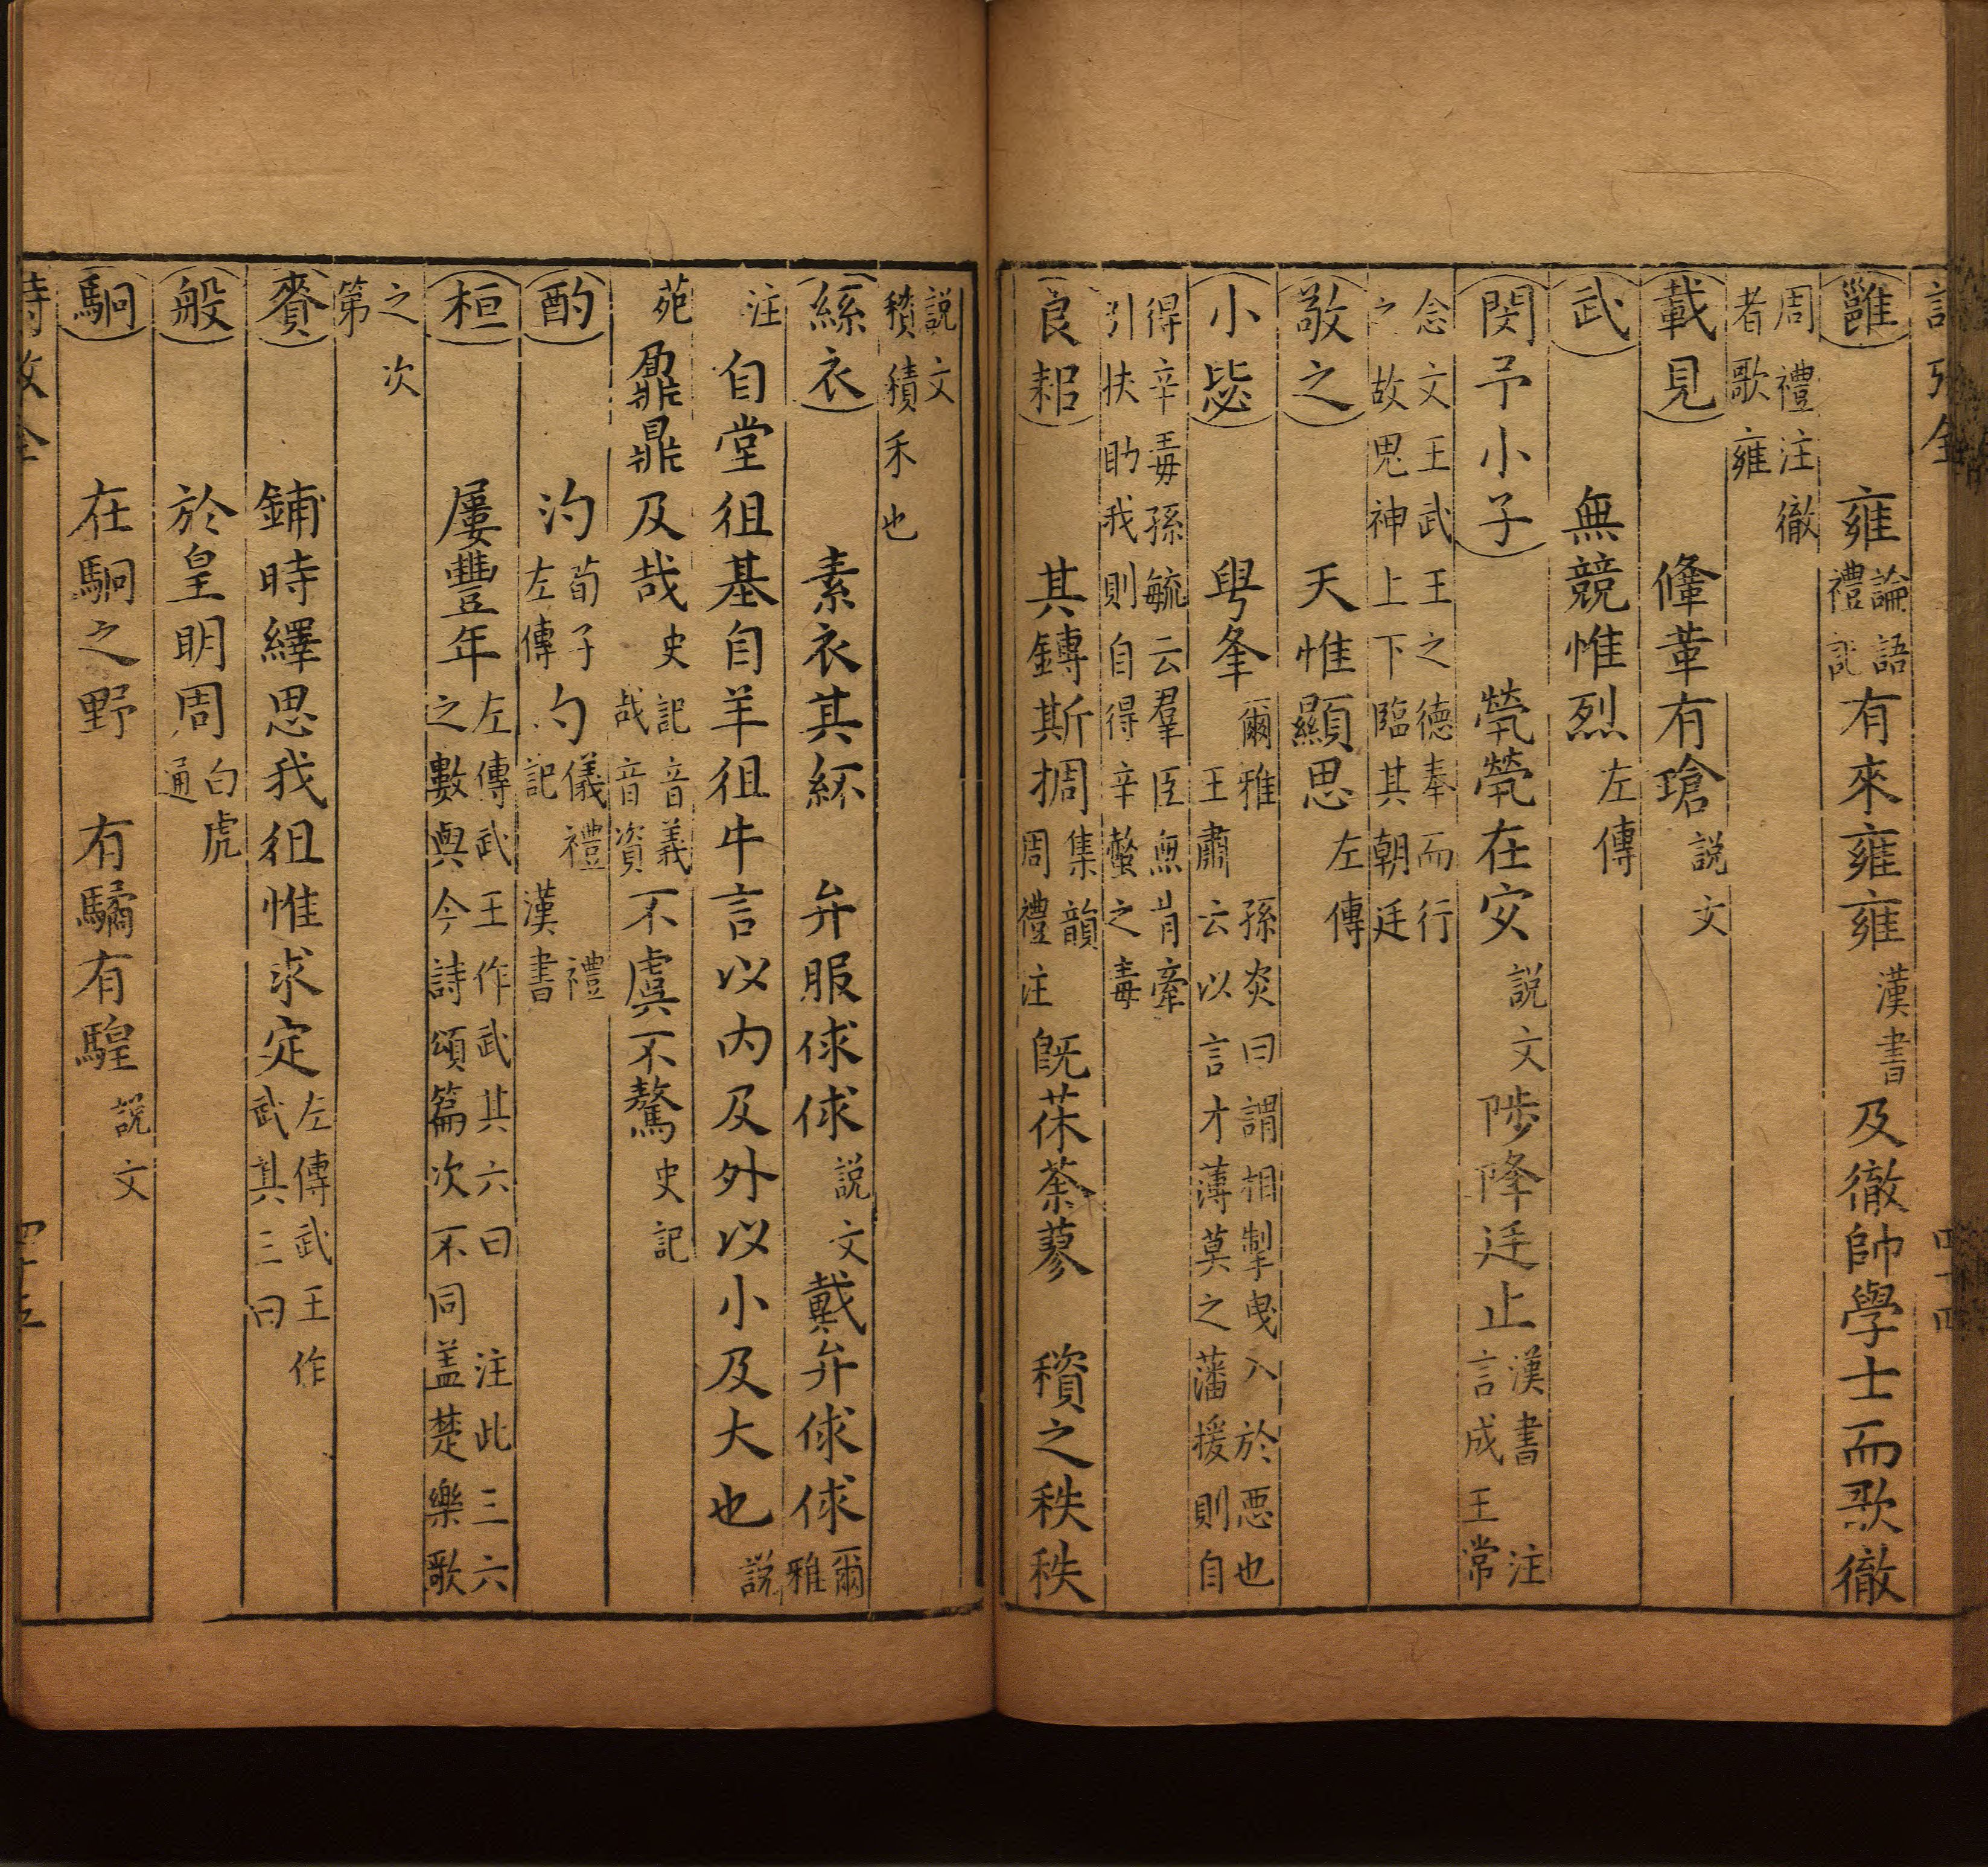 雝　雍論語禮記有來雍雍漢書及徹帥學士而歌徹
周禮注徹者歌雍
載見　鞗革有瑲説文
武　無競惟烈左傳
閔予小子　煢煢在㝌説文陟降廷止漢書注言成王常
念文王武王之德奉而行之故鬼神上下臨其朝廷
敬之　天惟顯思左傳
小毖　甹夆爾雅孫炎曰謂相掣曳入於惡也王肅云以言才薄莫之藩援則自
得辛毒孫毓云羣臣無肯牽引扶助我則自得辛螫之毒
良耜　其鎛斯搁集韻周禮注既茠荼蓼　䅔之秩秩
説文䅔積禾也
絲衣　素衣其紑　弁服俅俅説文戴弁俅俅爾雅
注自堂徂基自羊徂牛言以内及外以小及大也説
苑鼐鼎及哉史記音義哉音資不虞不驁史記
酌　汋荀子左傳勺儀禮禮記漢書
桓　屢豐年左傳武王作武其六曰注此三六之數與今詩頌篇次不同盖楚樂歌
之次第
賚　鋪時繹思我徂惟求定左傳武王作武其三曰
般　於皇明周白虎通
駉　在駉之野　有驈有騜説文